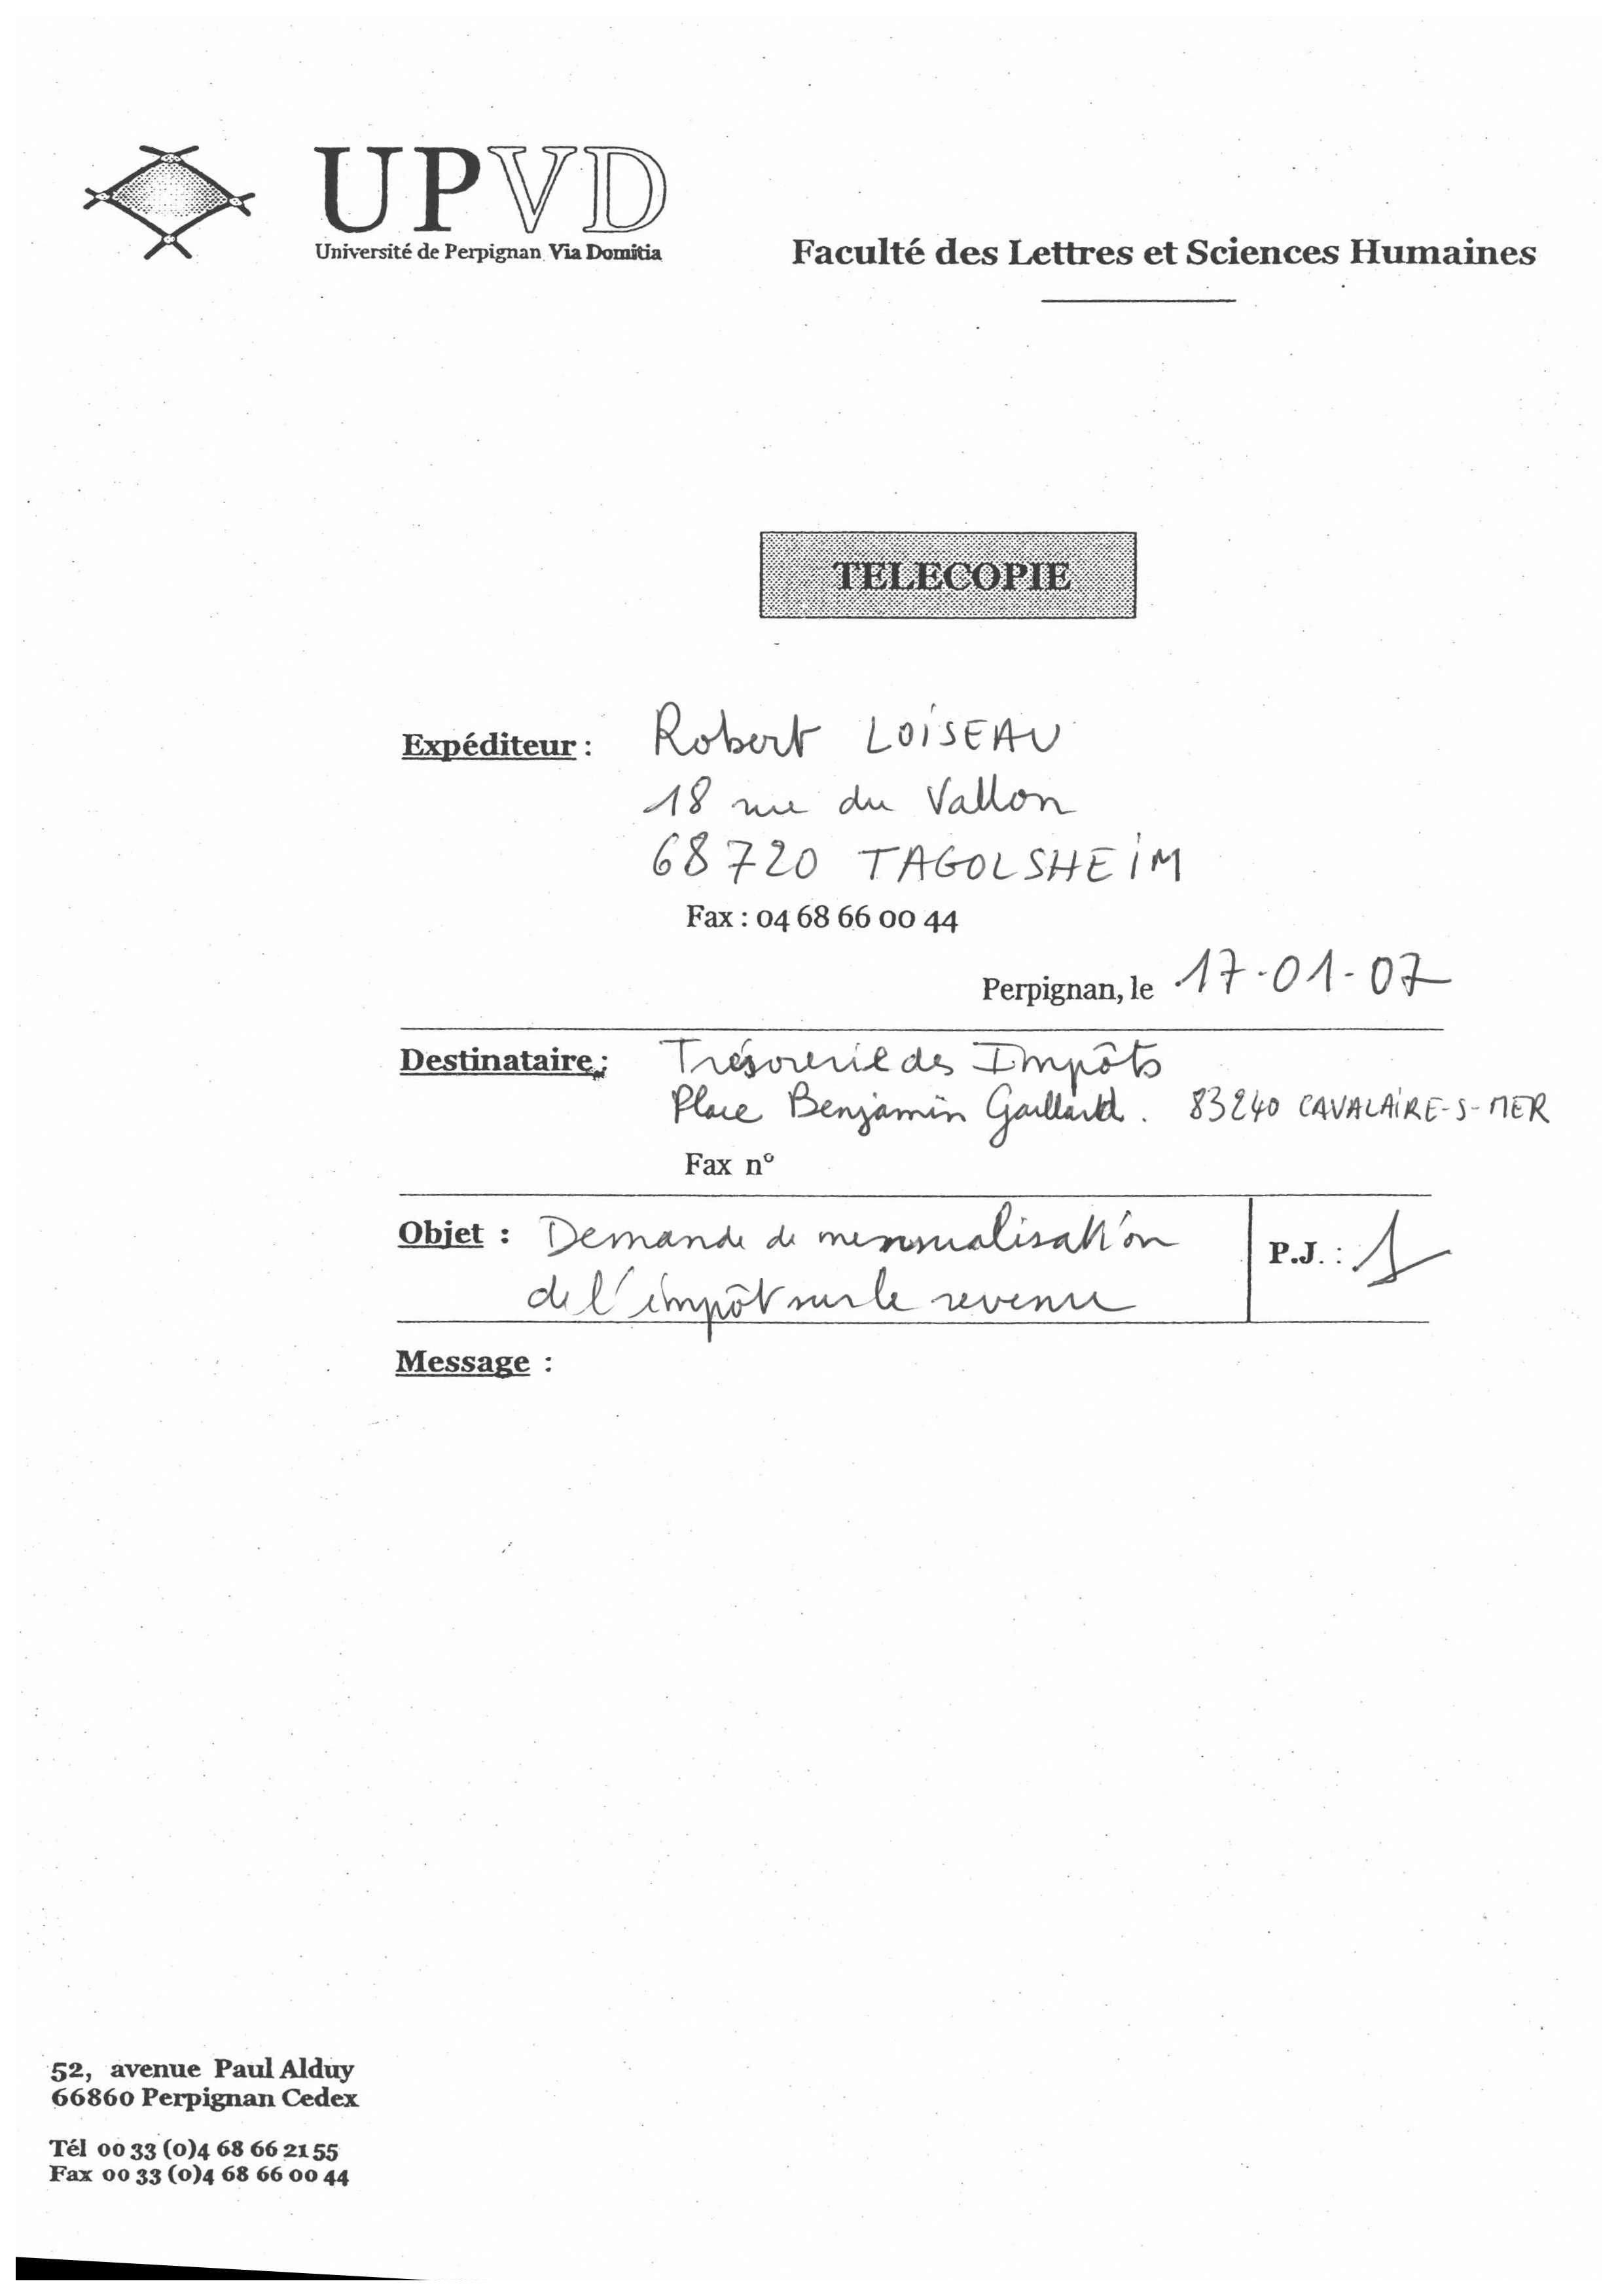 UPVD
Université de Perpignan Via Domitia
Faculté des Lettres et Sciences Humaines
TELECOPIE
Expéditeur : Robert LOISEAU
18 rue du Vallon
68720 TAGOLSHEIM
Fax : 04 68 66 00 44
Perpignan, le 17-01-07
Destinataire : Trésorerie des Impôts
Place Benjamin Gaillard. 83240 CAVALAIRE-S-MER
Fax n°
Objet : Demande de mensualisation
de l'impôt sur le revenu
P.J. : 1
Message :
52, avenue Paul Alduy
66860 Perpignan Cedex
Tél 00 33 (0)4 68 66 21 55
Fax 00 33 (0)4 68 66 00 44